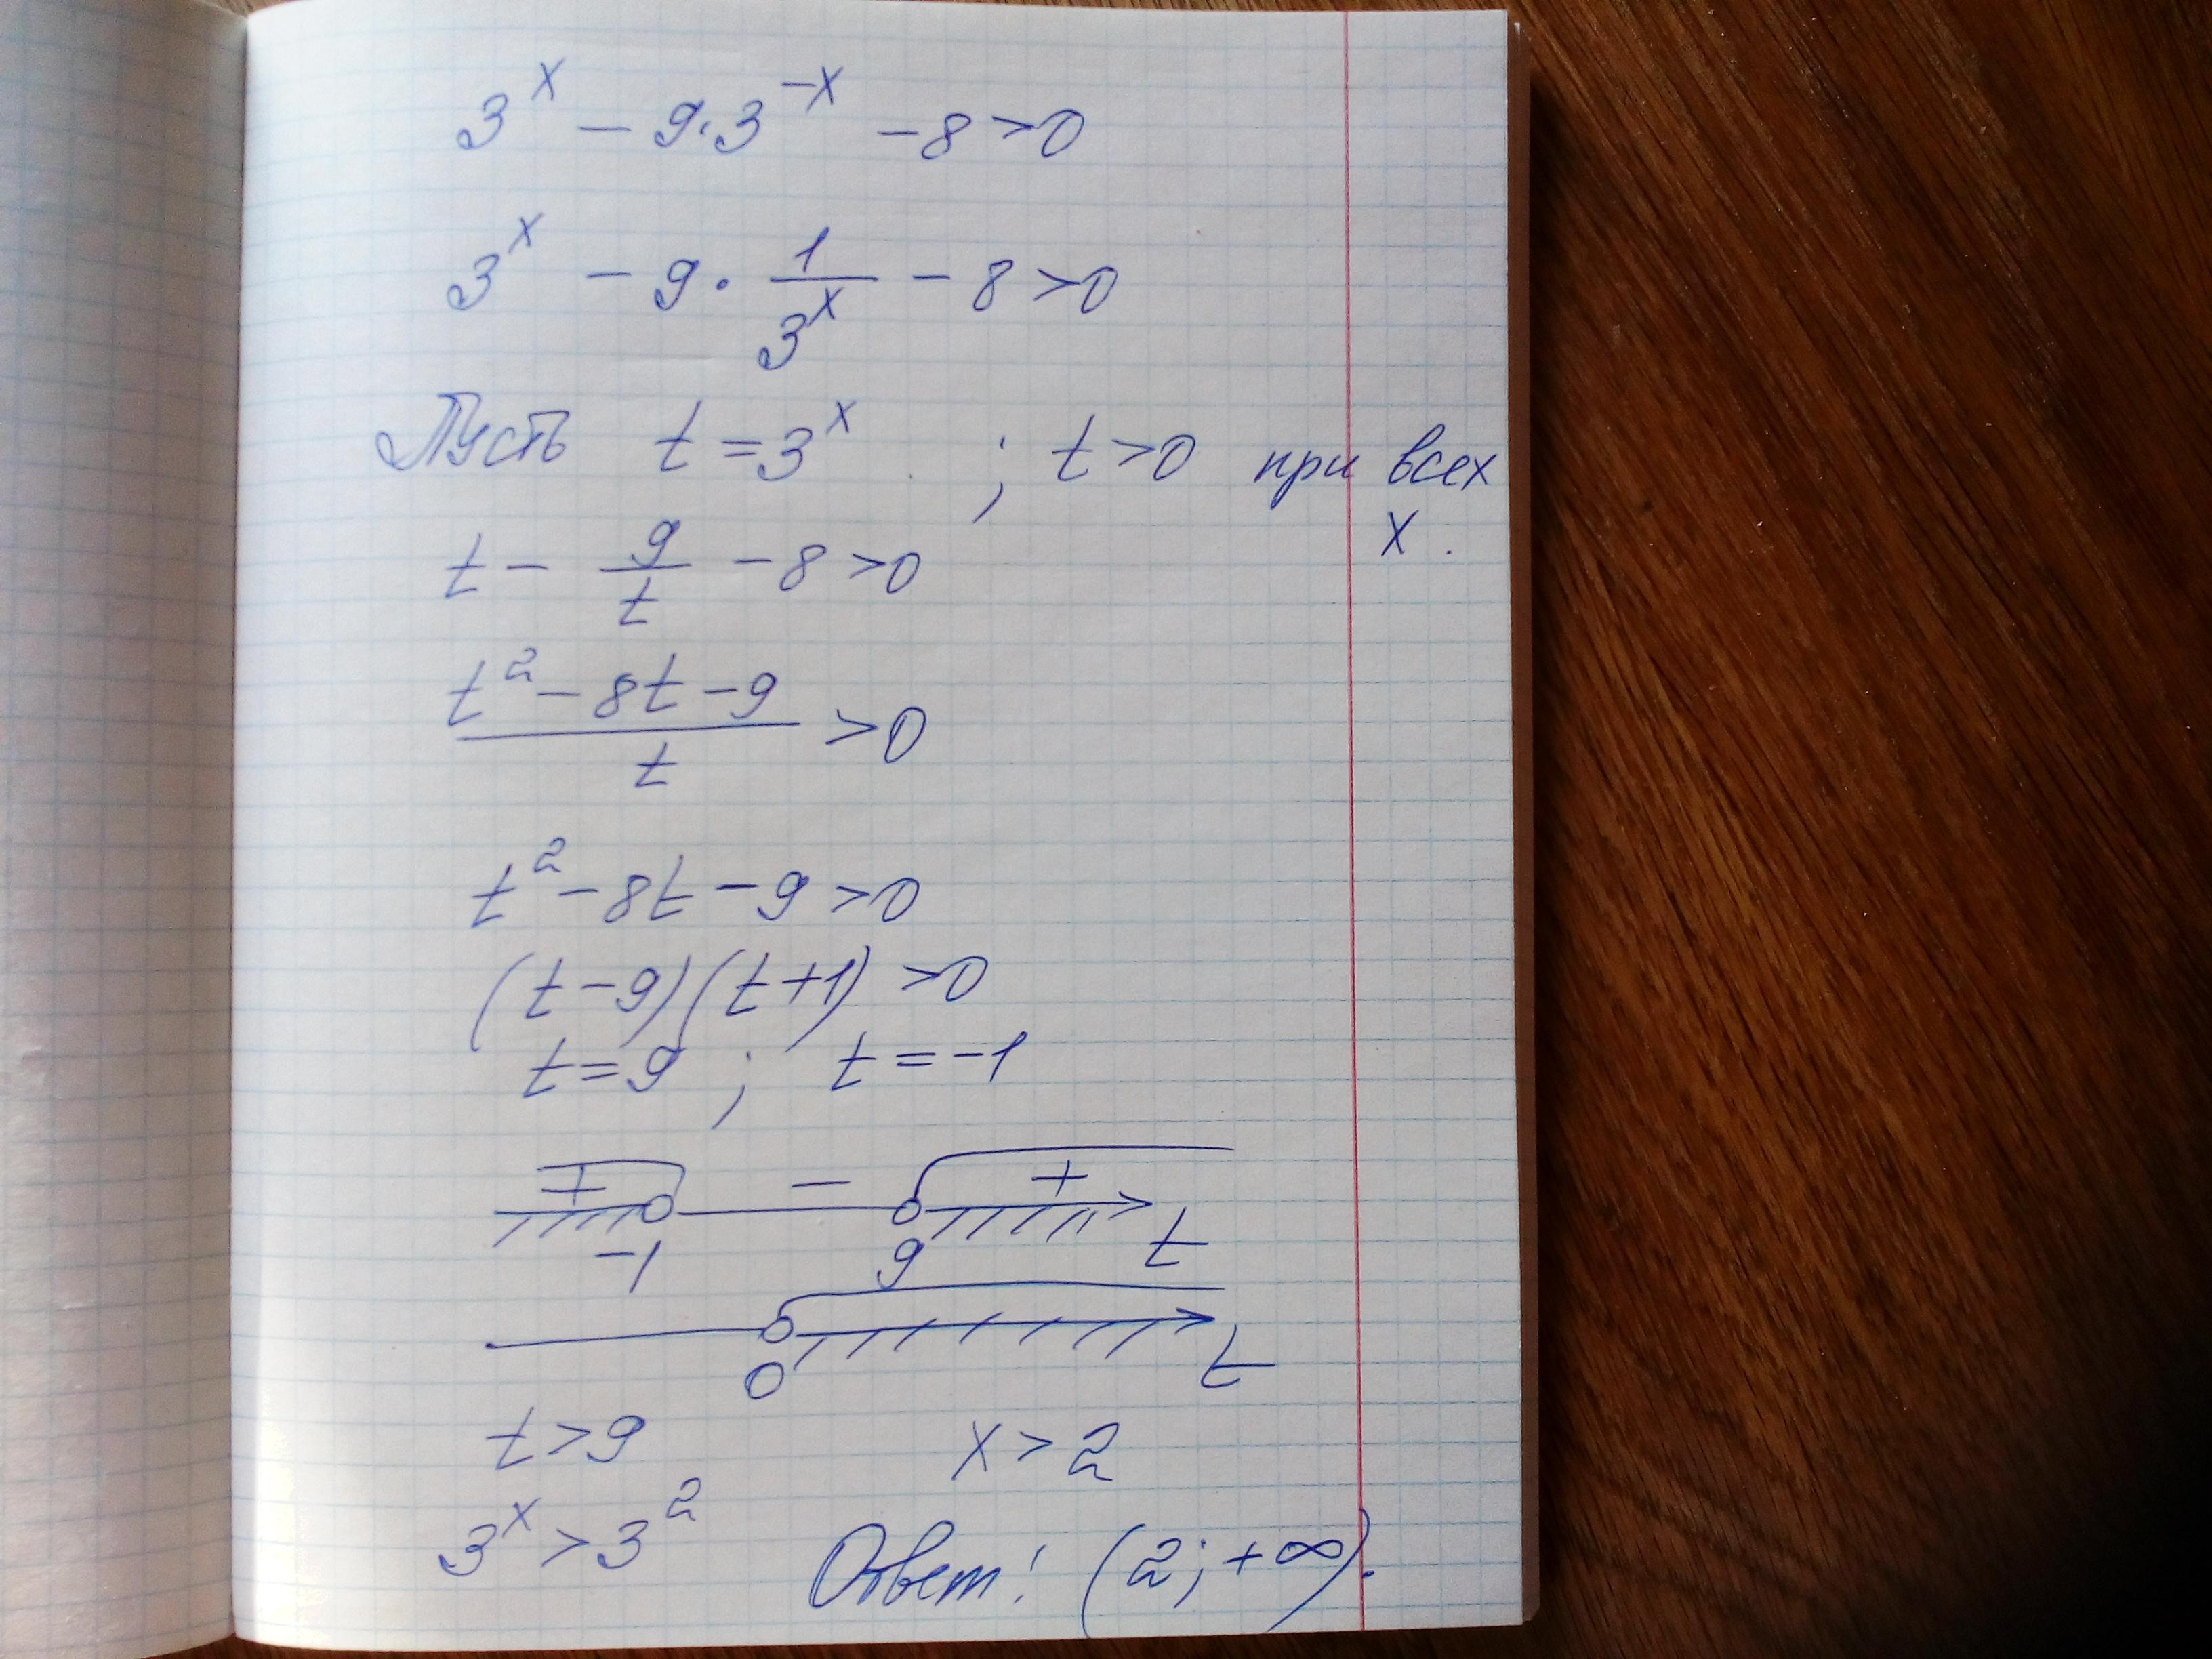 3^x − 9·3^−x − 8 > 0
3^x − 9 · 1/3^x − 8 > 0
Пусть t = 3^x ; t > 0 при всех
x .
t − 9/t − 8 > 0
(t² − 8t − 9)/t > 0
t² − 8t − 9 > 0
(t − 9)(t + 1) > 0
t = 9 ; t = −1
+ − +
−1 9 t
0 t
t > 9 x > 2
3^x > 3^2
Ответ: (2; +∞).